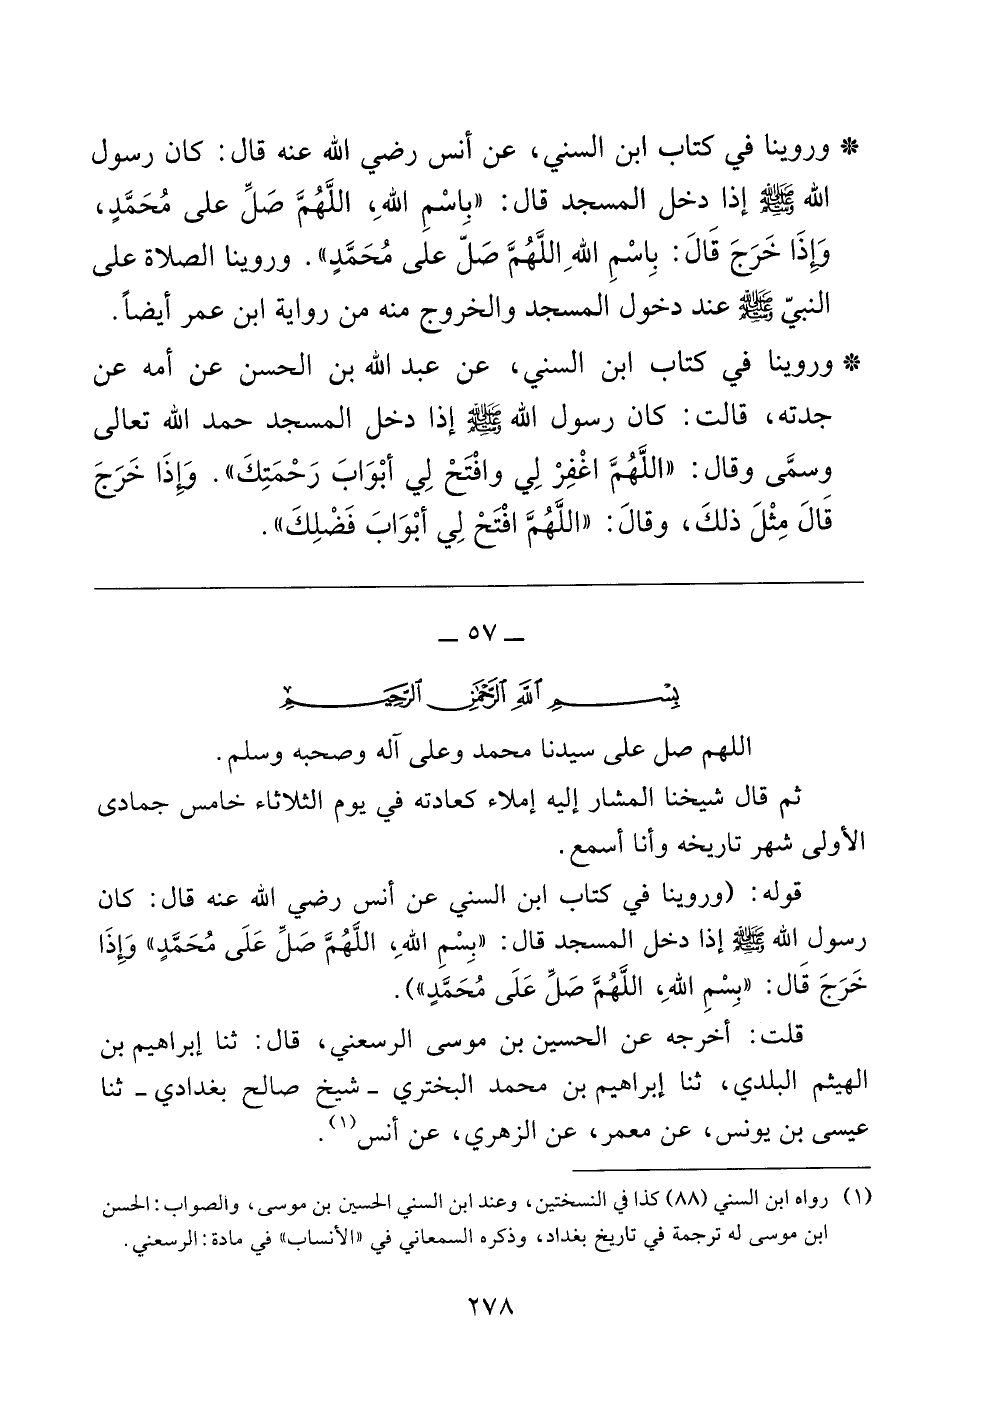 * وروينا في كتاب ابن السني، عن أنس رضي الله عنه قال: كان رسول
الله ﷺ إذا دخل المسجد قال: «بِاسْمِ اللهِ، اللَّهُمَّ صَلِّ على مُحَمَّدٍ،
وَإِذَا خَرَجَ قَالَ: بِاسْمِ اللهِ اللَّهُمَّ صَلّ على مُحَمَّدٍ». وروينا الصلاة على
النبيّ ﷺ عند دخول المسجد والخروج منه من رواية ابن عمر أيضاً.
* وروينا في كتاب ابن السني، عن عبد الله بن الحسن عن أمه عن
جدته، قالت: كان رسول الله ﷺ إذا دخل المسجد حمد الله تعالى
وسمَّى وقال: «اللَّهُمَّ اغْفِرْ لِي وافْتَحْ لِي أبْوَابَ رَحْمَتِكَ». وَإِذَا خَرَجَ
قَالَ مِثْلَ ذلكَ، وقالَ: «اللَّهُمَّ افْتَحْ لِي أبْوَابَ فَضْلِكَ».
ـ ٥٧ ـ
بِسْمِ اللَّهِ الرَّحْمَنِ الرَّحِيمِ
اللهم صل على سيدنا محمد وعلى آله وصحبه وسلم.
ثم قال شيخنا المشار إليه إملاء كعادته في يوم الثلاثاء خامس جمادى
الأولى شهر تاريخه وأنا أسمع.
قوله: (وروينا في كتاب ابن السني عن أنس رضي الله عنه قال: كان
رسول الله ﷺ إذا دخل المسجد قال: «بِسْمِ اللهِ، اللَّهُمَّ صَلِّ عَلَى مُحَمَّدٍ» وَإِذَا
خَرَجَ قَال: «بِسْمِ اللهِ، اللَّهُمَّ صَلِّ عَلَى مُحَمَّدٍ»).
قلت: أخرجه عن الحسين بن موسى الرسعني، قال: ثنا إبراهيم بن
الهيثم البلدي، ثنا إبراهيم بن محمد البختري ـ شيخ صالح بغدادي ـ ثنا
عيسى بن يونس، عن معمر، عن الزهري، عن أنس(١).
(١) رواه ابن السني (٨٨) كذا في النسختين، وعند ابن السني الحسين بن موسى، والصواب: الحسن
ابن موسى له ترجمة في تاريخ بغداد، وذكره السمعاني في «الأنساب» في مادة: الرسعني.
٢٧٨